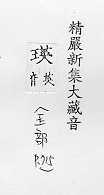 精嚴新集大藏音
瑛
音英
(玉部
P.715)